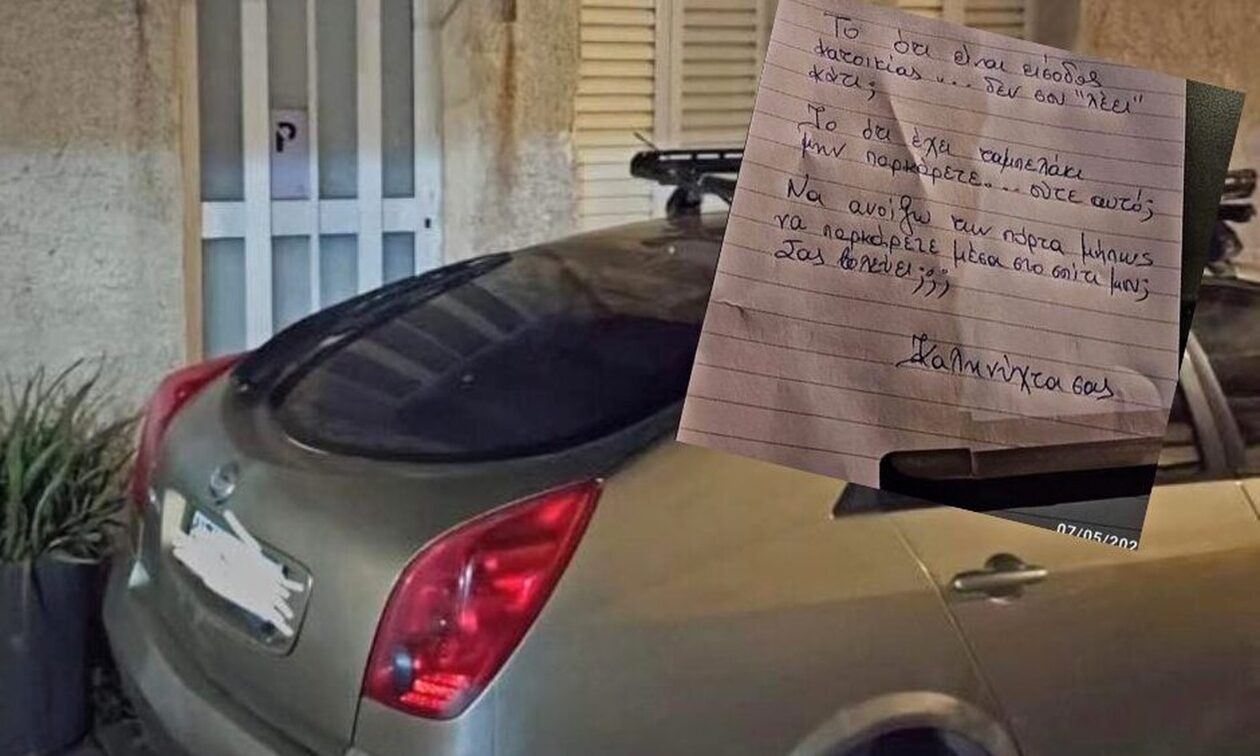 P
Το ότι είναι είσοδος
κατοικίας .... δεν σου "λέει"
κάτι;
Το ότι έχει ταμπελάκι
μην παρκάρετε.... ούτε αυτό;
Να ανοίξω την πόρτα μήπως
να παρκάρετε μέσα στο σπίτι μου;
Σας βολεύει;;;;
Καληνύχτα σας
07/05/202